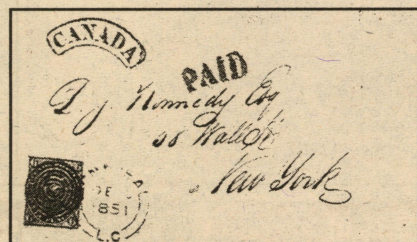 CANADA
PAID
D J Kennedy Esq
58 Wall St
New York
1851
L.C